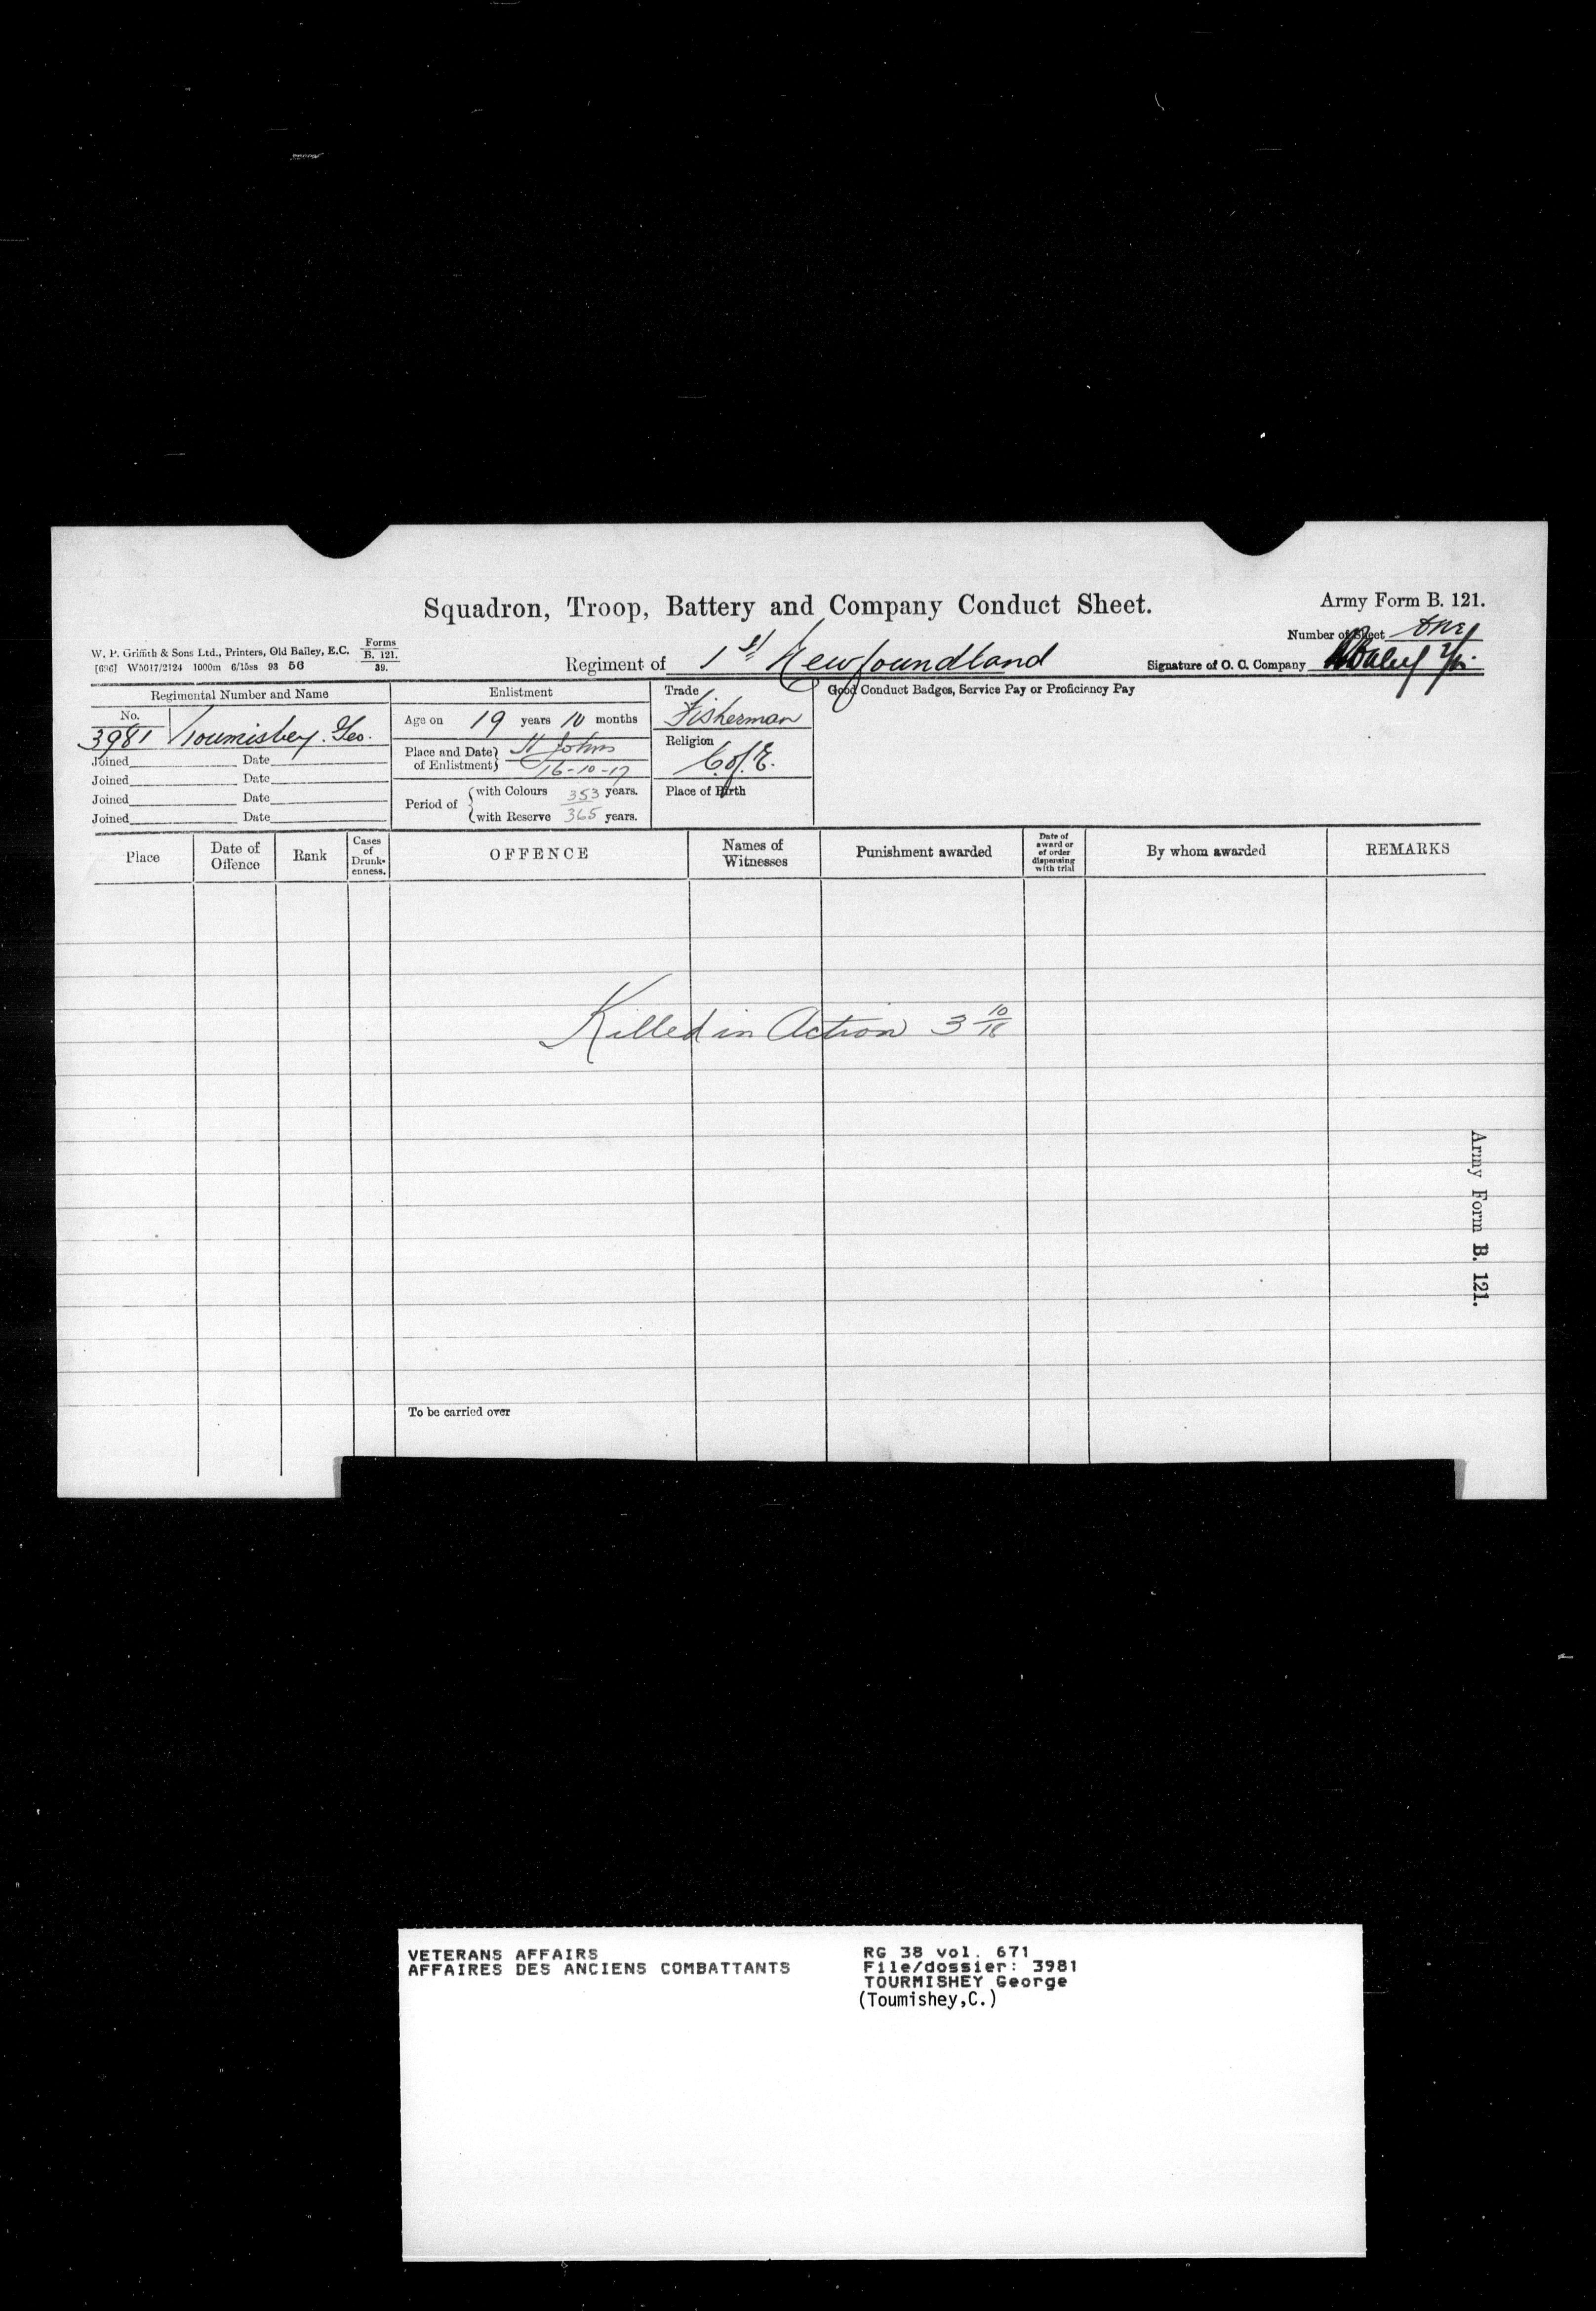 Squadron, Troop, Battery and Company Conduct Sheet.
Army Form B. 121.
W. P. Griffith & Sons Ltd., Printers, Old Bailey, E.C.
[696] W5017/2124 1000m 6/15ss 93 56
Forms
B. 121.
39.
Number of Sheet one
Regiment of 1st Newfoundland
Signature of O. C. Company
Regimental Number and Name
No.
3981 Toumishey. Geo.
Joined Date
Joined Date
Joined Date
Joined Date
Enlistment
Age on 19 years 10 months
Place and Date of Enlistment St Johns
16-10-17
Period of with Colours 353 years.
with Reserve 365 years.
Trade
Fisherman
Religion
C. of. E.
Place of Birth
Good Conduct Badges, Service Pay or Proficiency Pay
Place
Date of Offence
Rank
Cases of Drunk-enness.
OFFENCE
Names of Witnesses
Punishment awarded
Date of award or of order dispensing with trial
By whom awarded
REMARKS
Killed in Action 3 10/18
To be carried over
Army Form B. 121.
VETERANS AFFAIRS
AFFAIRES DES ANCIENS COMBATTANTS
RG 38 vol. 671
File/dossier: 3981
TOURMISHEY George
(Toumishey,C.)